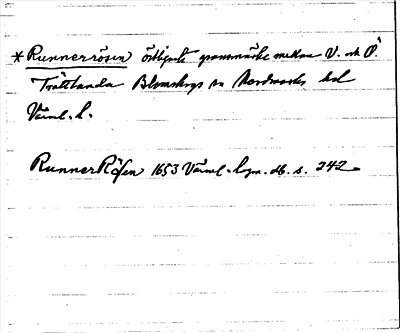 *Runnerrösen östligaste gränsmärke mellan V. och Ö.
Trättlanda Blomskogs sn Nordmarks hd
Värml. l.
RunnerRösen 1653 Värml. lagm. db. s. 242